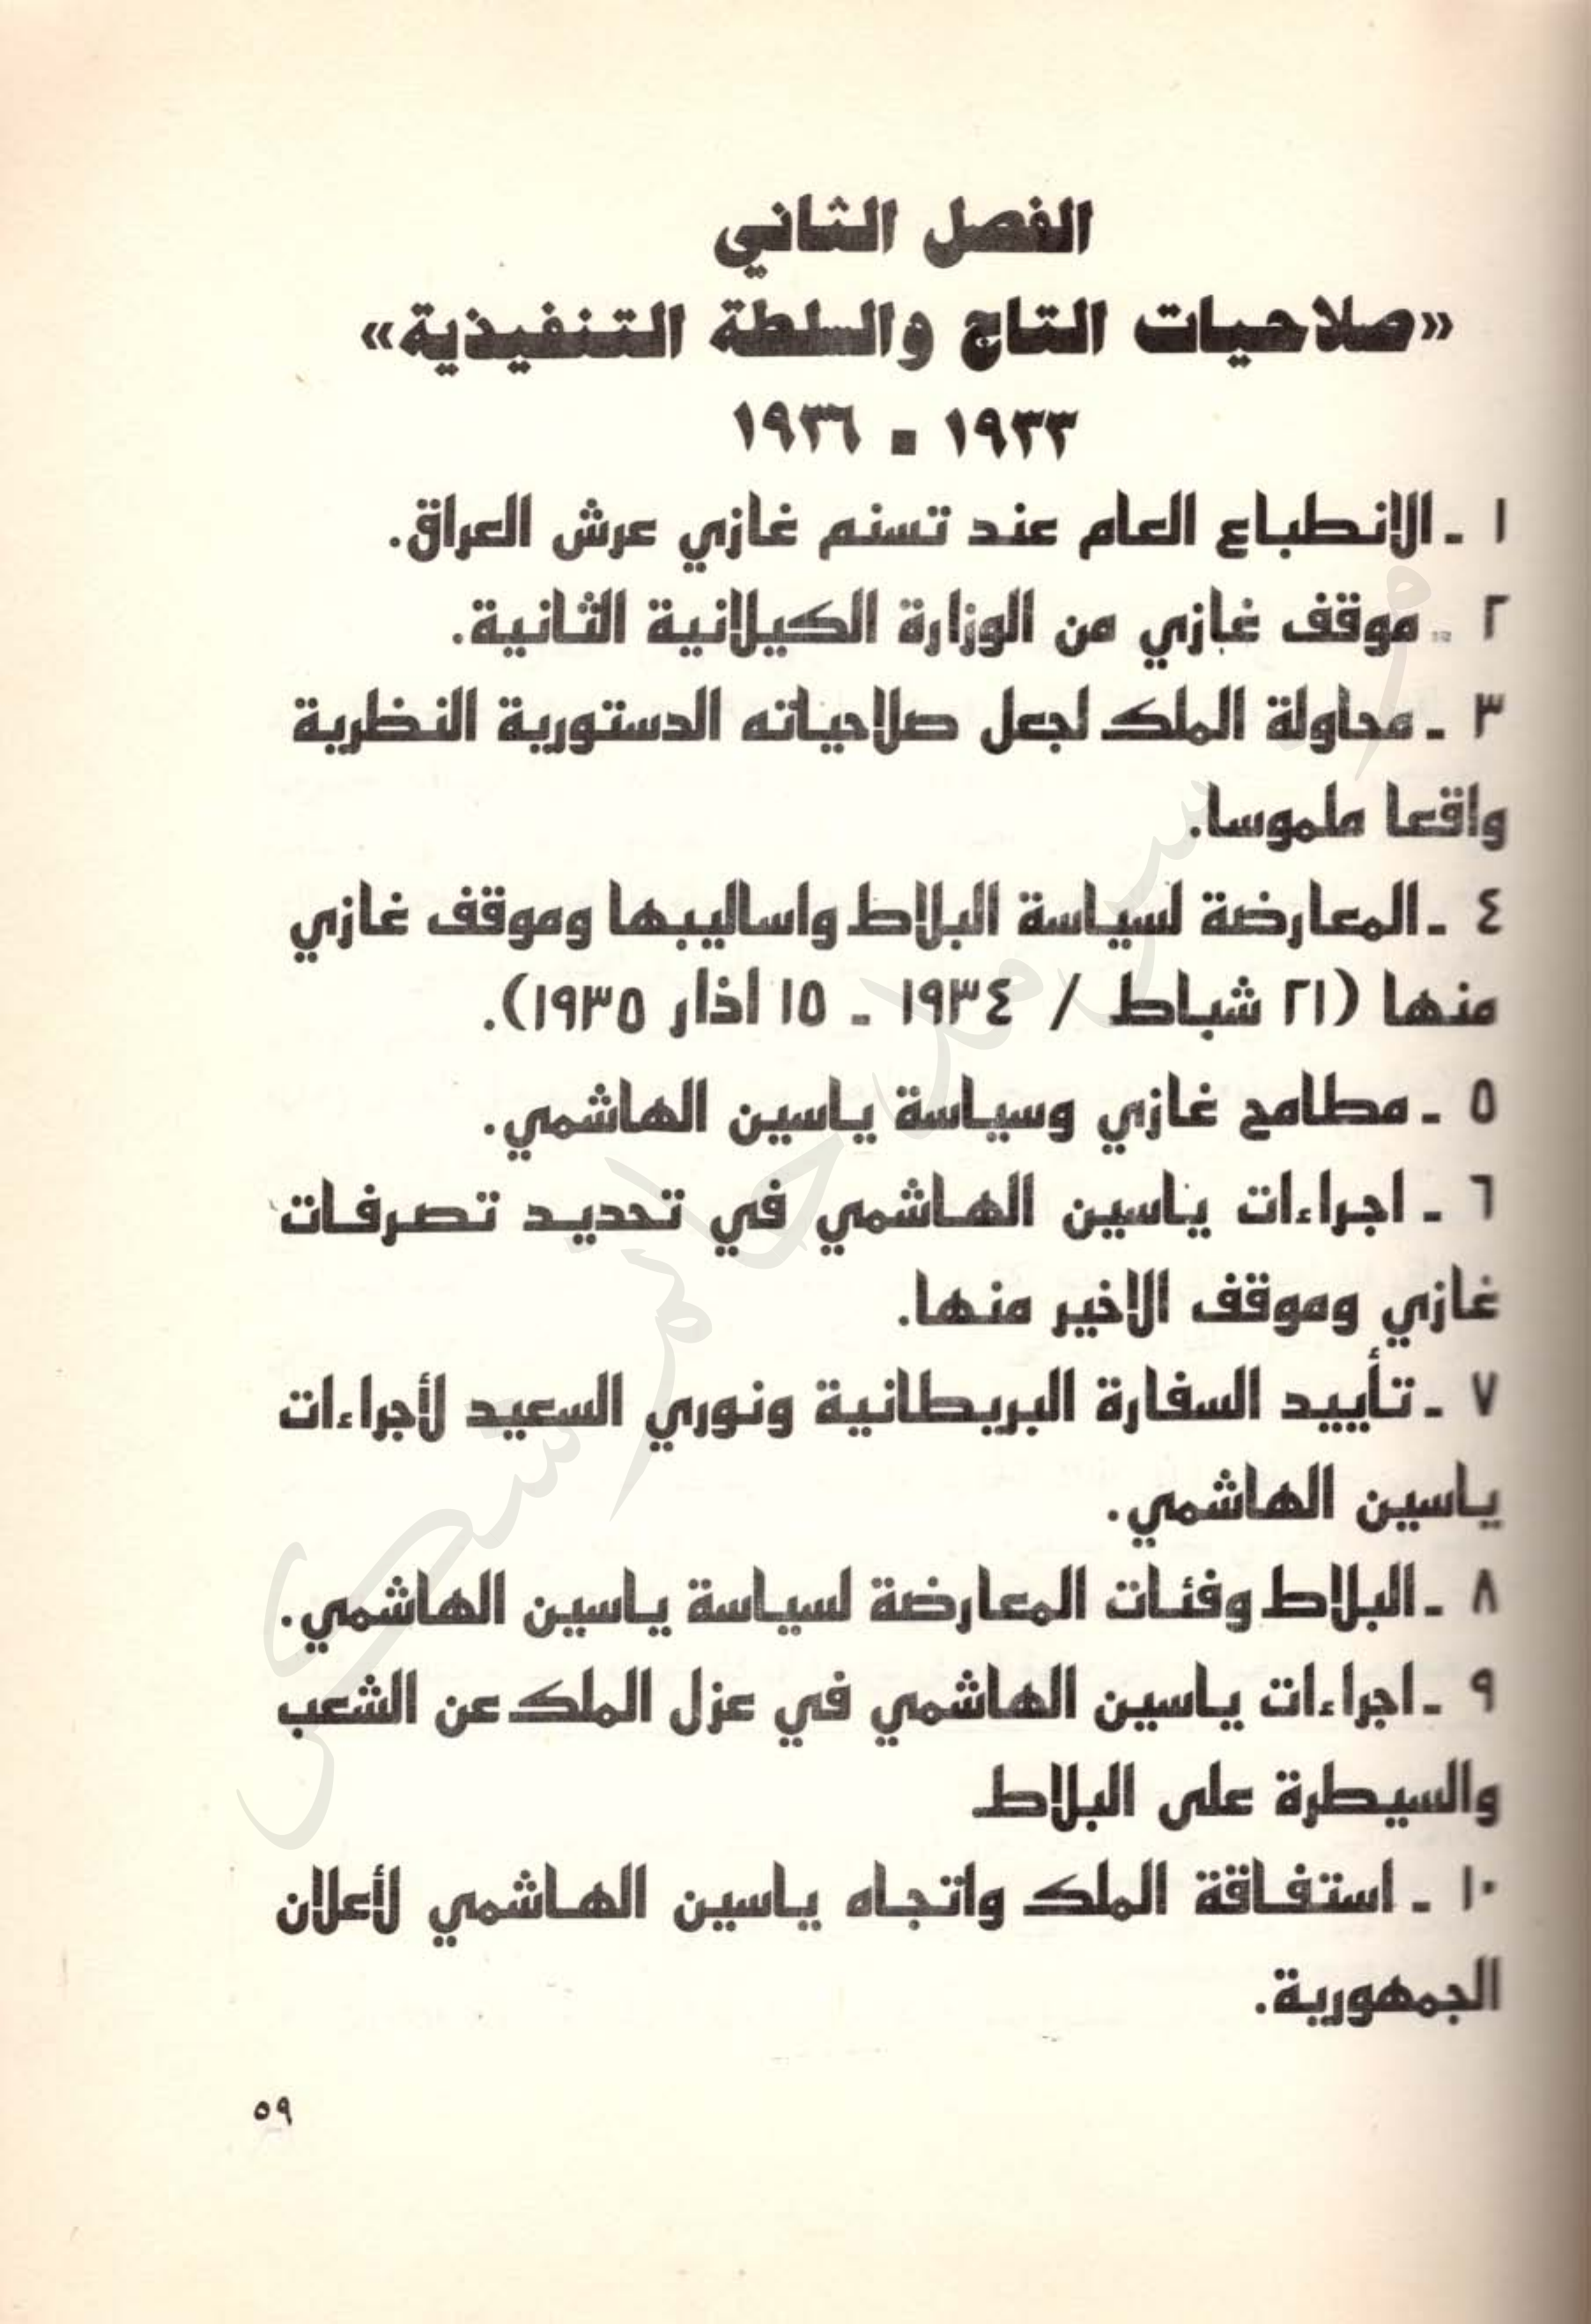 الفصل الثاني
«صلاحيات التاج والسلطة التنفيذية»
١٩٣٣ - ١٩٣٦
١ - الانطباع العام عند تسنم غازي عرش العراق.
٢ - موقف غازي من الوزارة الكيلانية الثانية.
٣ - محاولة الملك لجعل صلاحياته الدستورية النظرية
واقعا ملموسا.
٤ - المعارضة لسياسة البلاط واساليبها وموقف غازي
منها (٢١ شباط / ١٩٣٤ - ١٥ اذار ١٩٣٥).
٥ - مطامح غازي وسياسة ياسين الهاشمي.
٦ - اجراءات ياسين الهاشمي في تحديد تصرفات
غازي وموقف الاخير منها.
٧ - تأييد السفارة البريطانية ونوري السعيد لأجراءات
ياسين الهاشمي.
٨ - البلاط وفئات المعارضة لسياسة ياسين الهاشمي.
٩ - اجراءات ياسين الهاشمي في عزل الملك عن الشعب
والسيطرة على البلاط
١٠ - استفاقة الملك واتجاه ياسين الهاشمي لأعلان
الجمهورية.
٥٩